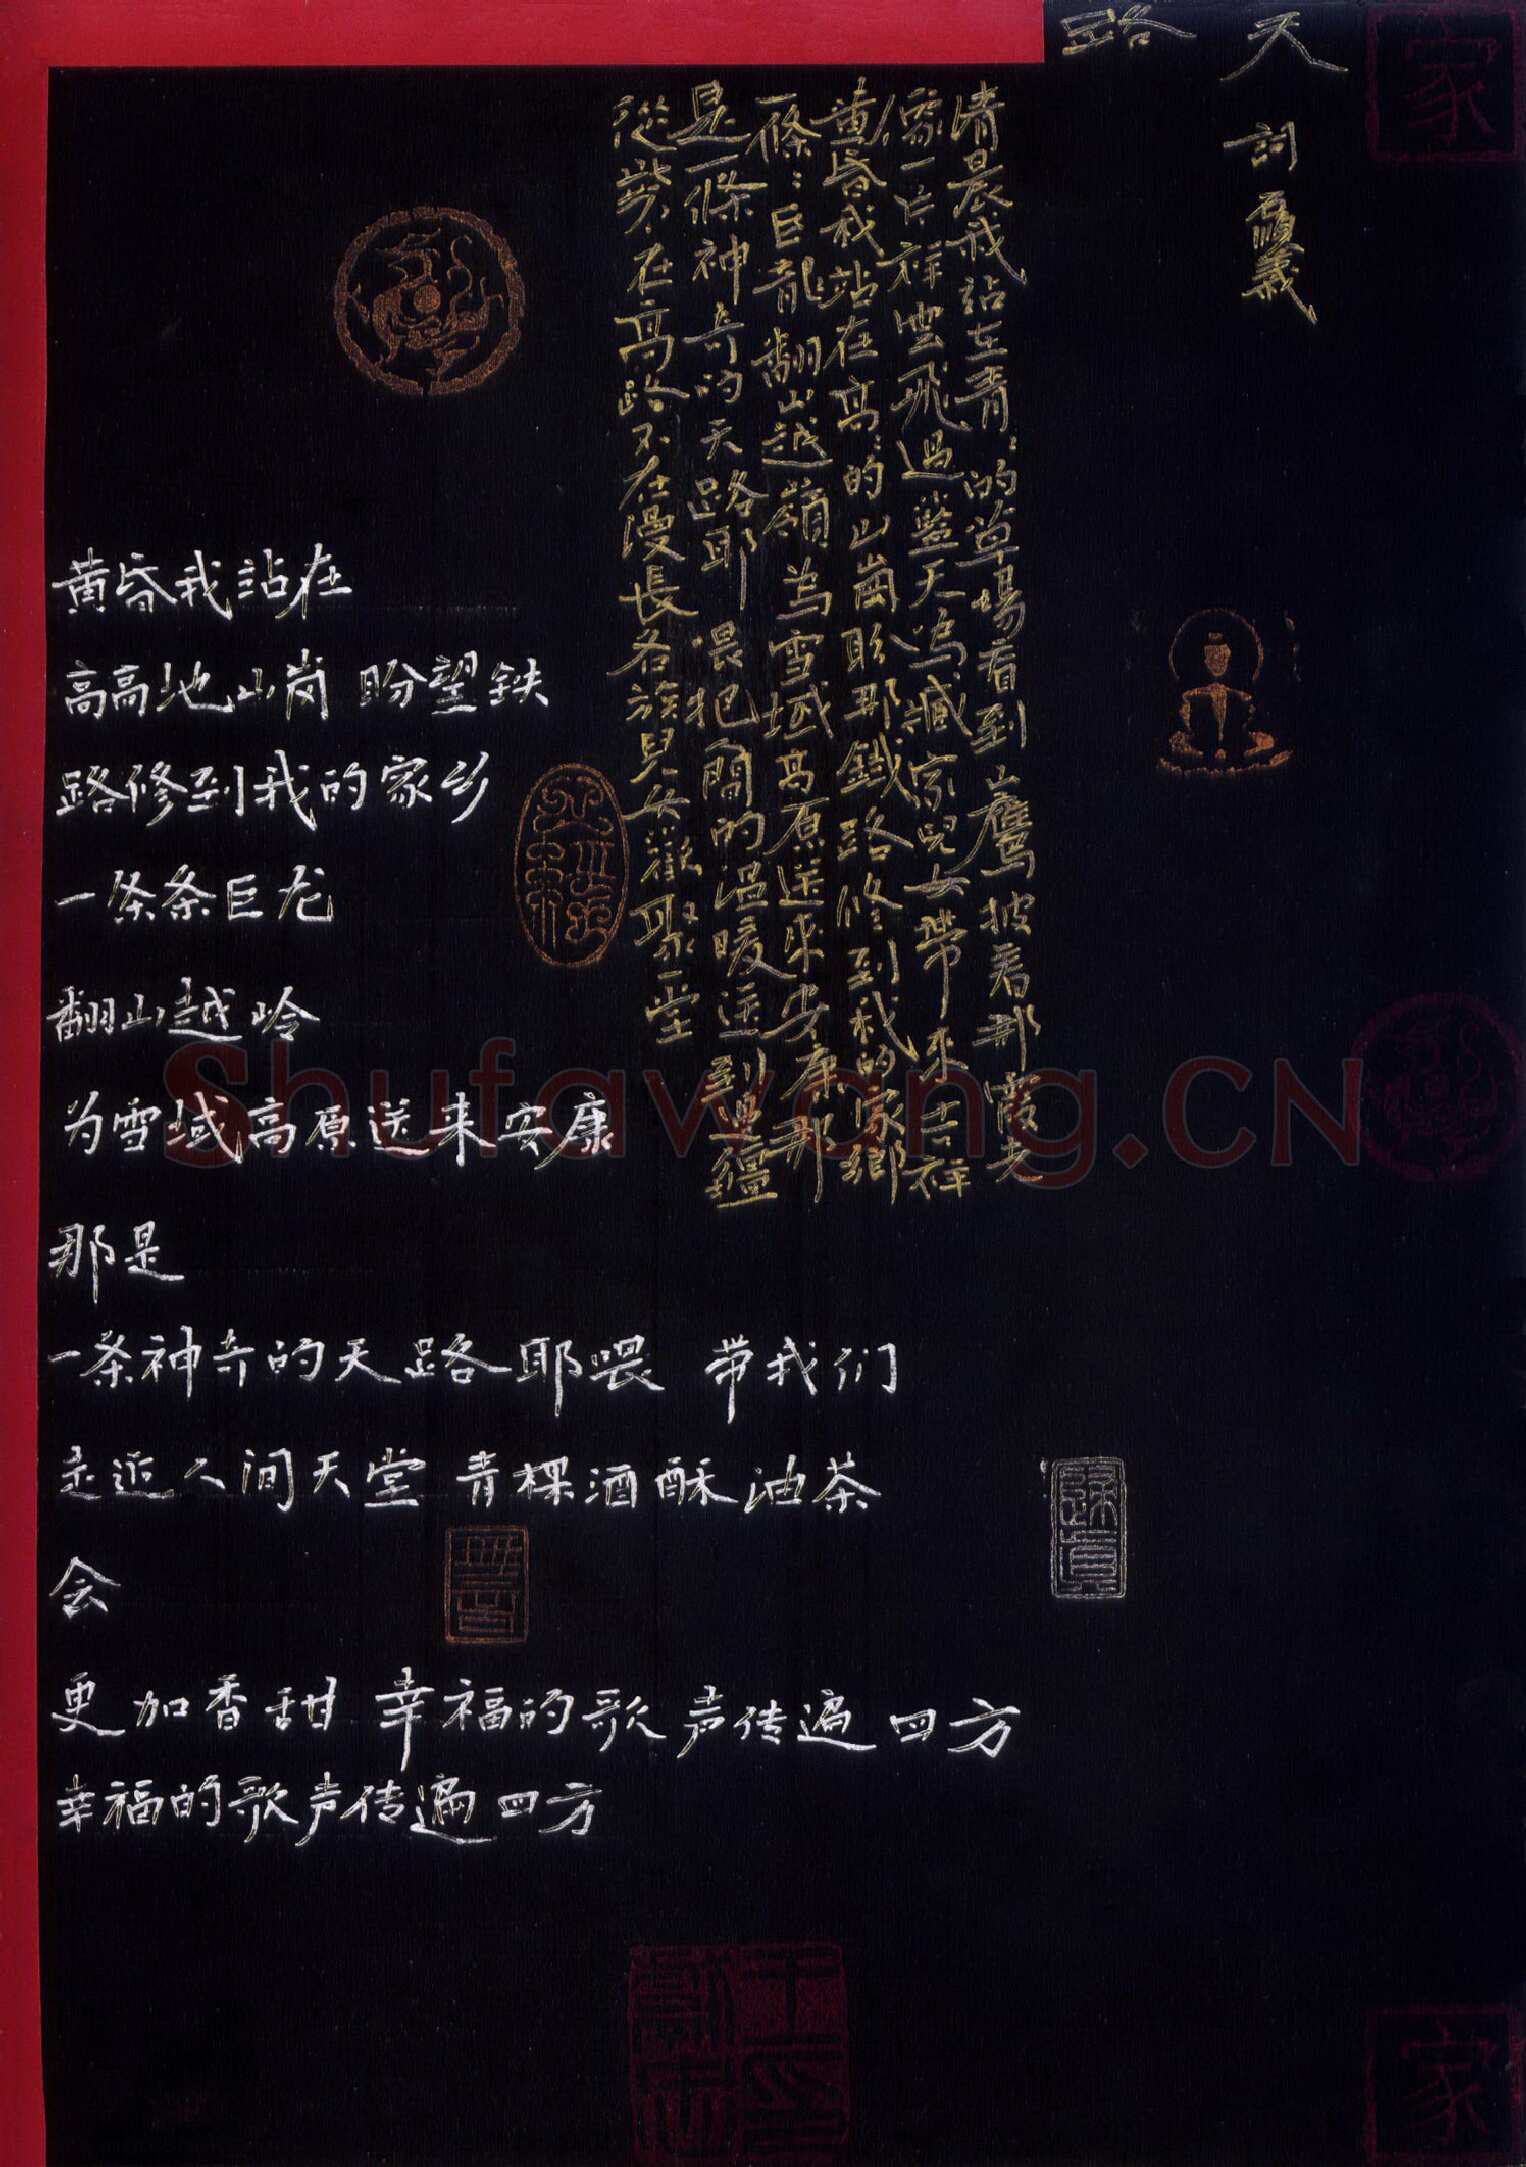 天路
詞 屈義
清晨我站在青〻的草場看到山鷹披着那霞光
像一片祥雲飛過藍天為藏家兒女帶來吉祥
黄昏我站在高〻的山崗盼那鐵路修到我的家鄉
一條〻巨龍翻山越嶺為雪域高原送來安康那
是一條神奇的天路耶 喂把人間的温暖送到邊疆
從此山不在高路不在漫長各族兒女歡聚一堂
黄昏我站在
高高地山岗 盼望鉄
路修到我的家乡
一条条巨龙
翻山越岭
为雪域高原送来安康
那是
一条神奇的天路耶喂 带我们
走近人间天堂 青稞酒酥油茶
会
更加香甜 幸福的歌声传遍四方
幸福的歌声传遍四方
家
家
Shufawang.CN